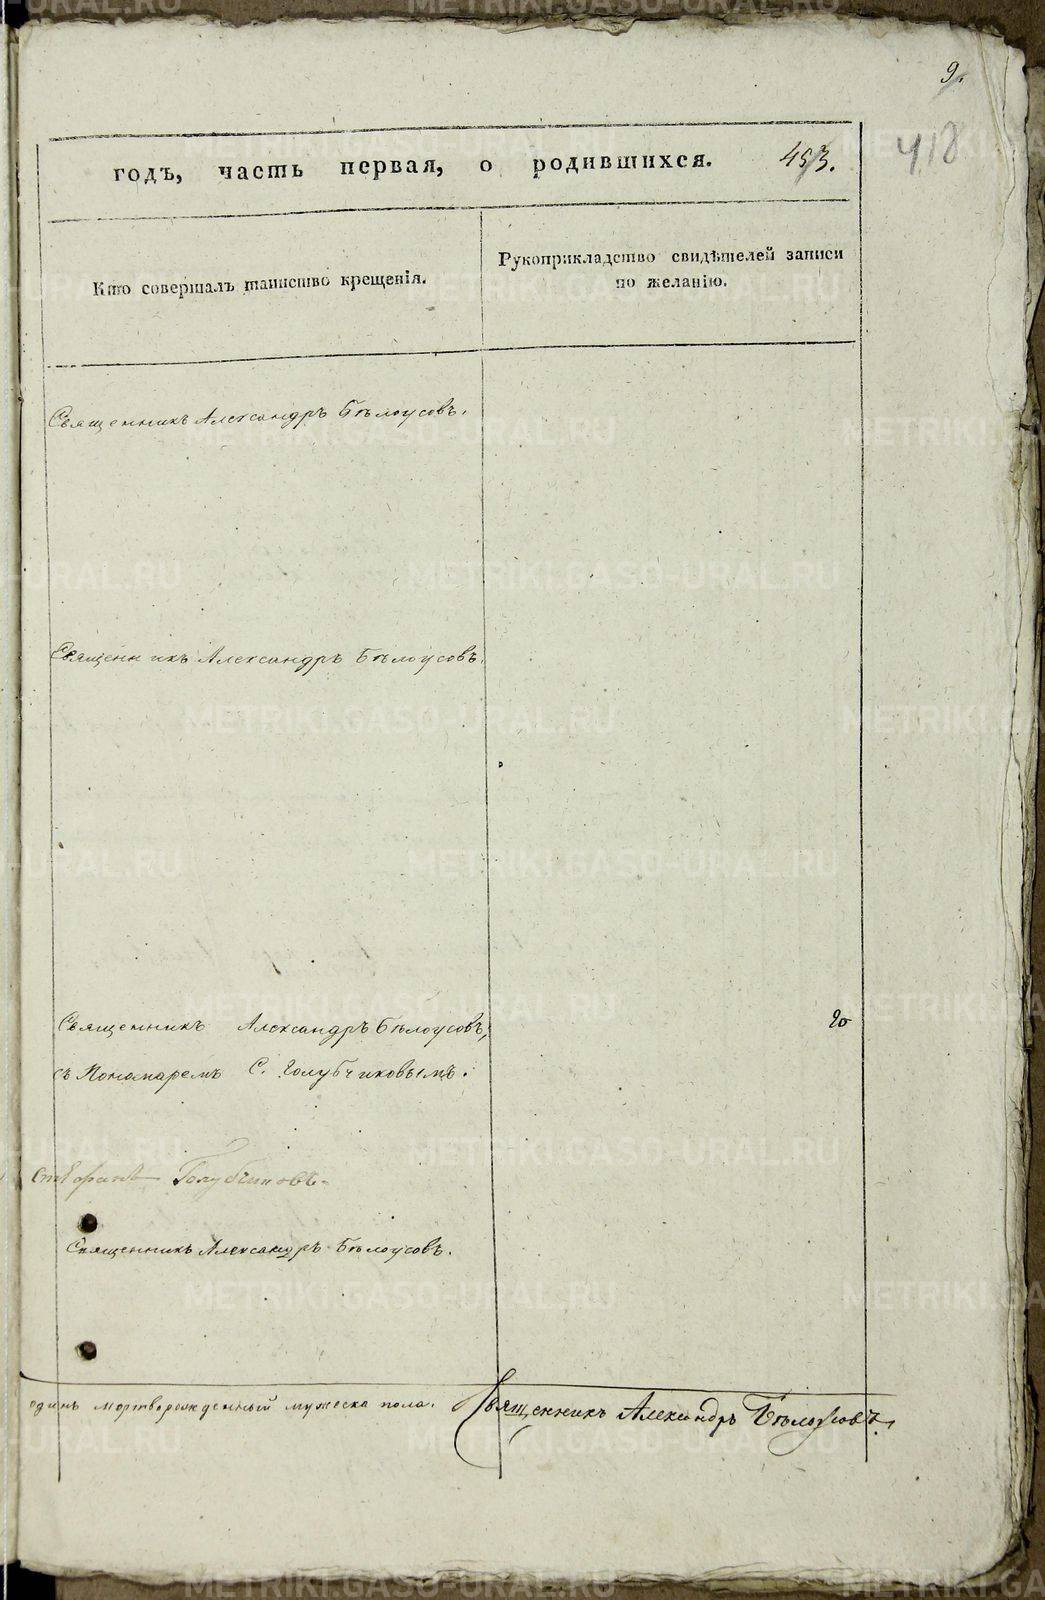 9.
418
годъ, часть первая, о родившихся. 453.
Кто совершалъ таинство крещенія.
Рукоприкладство свидѣтелей записи
по желанію.
Священникъ Александръ Бѣлоусовъ.
Священникъ Александръ Бѣлоусовъ.
Священникъ Александръ Бѣлоусовъ,
съ Пономаремъ С. Голубчиковымъ.
Голубчиковъ
Священникъ Александръ Бѣлоусовъ.
одинъ мертворожденный мужеска пола. Священникъ Александръ Бѣлоусовъ.
METRIKI.GASO-URAL.RU